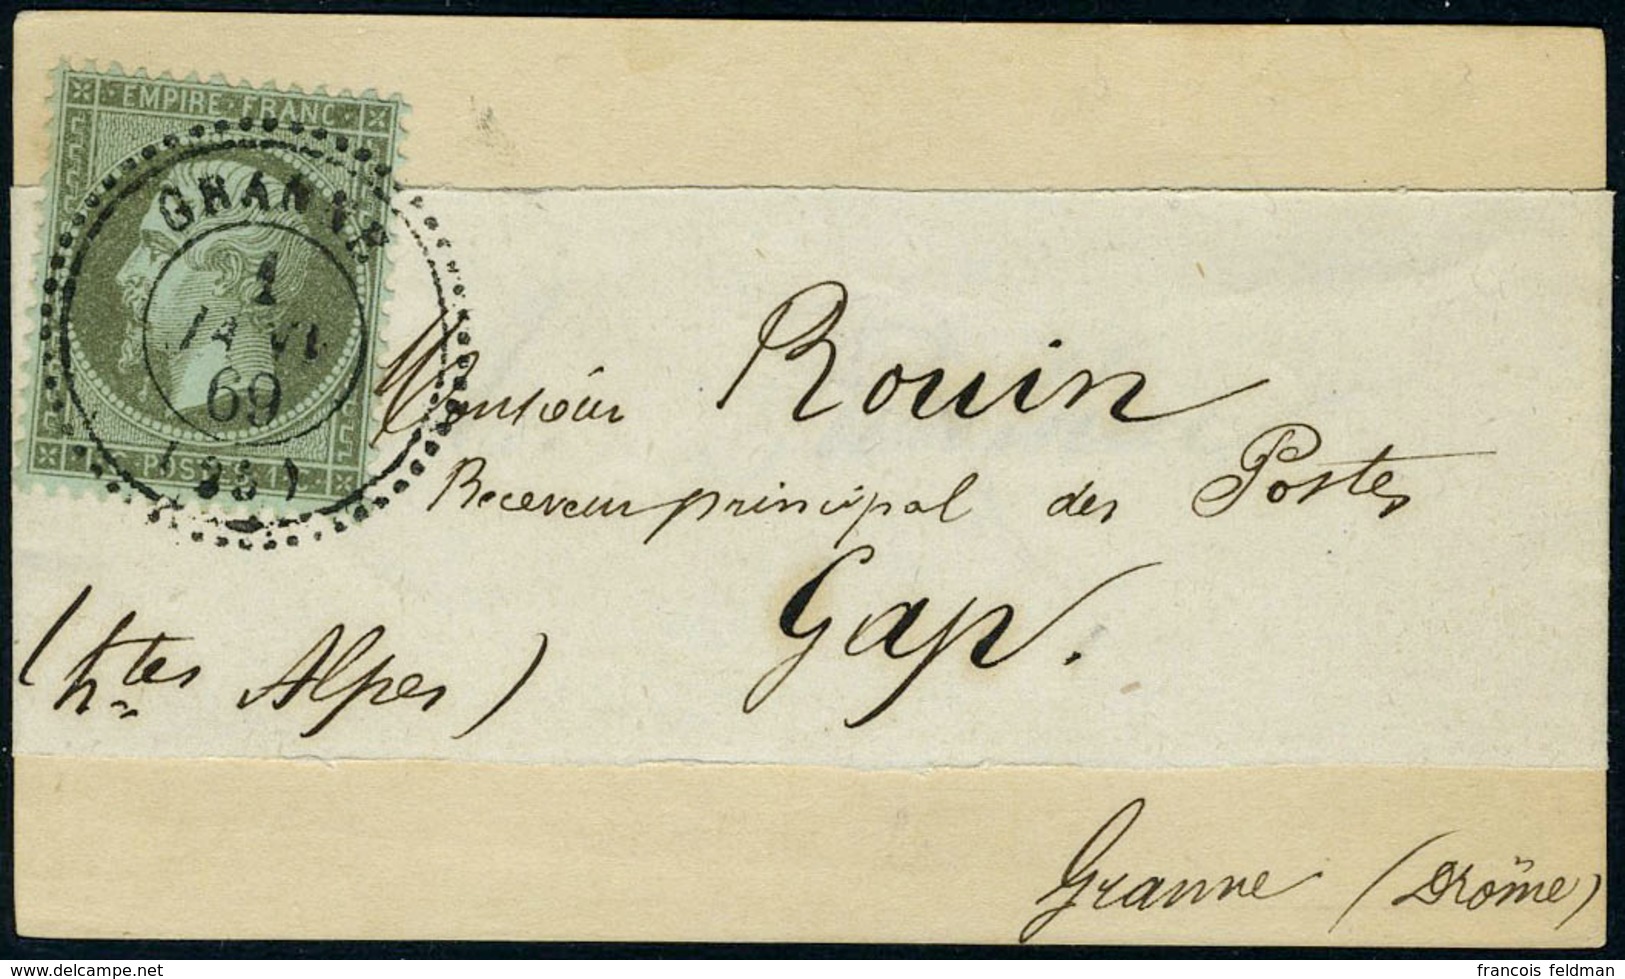 EMPIRE FRANC
GRANNE
1
JANV.
69
(25)
POSTES 1 C
Monsieur Rouin
Receveur principal des Postes
Gap.
(htes Alpes)
Granne (Drôme)
www.delcampe.net
francois feldman